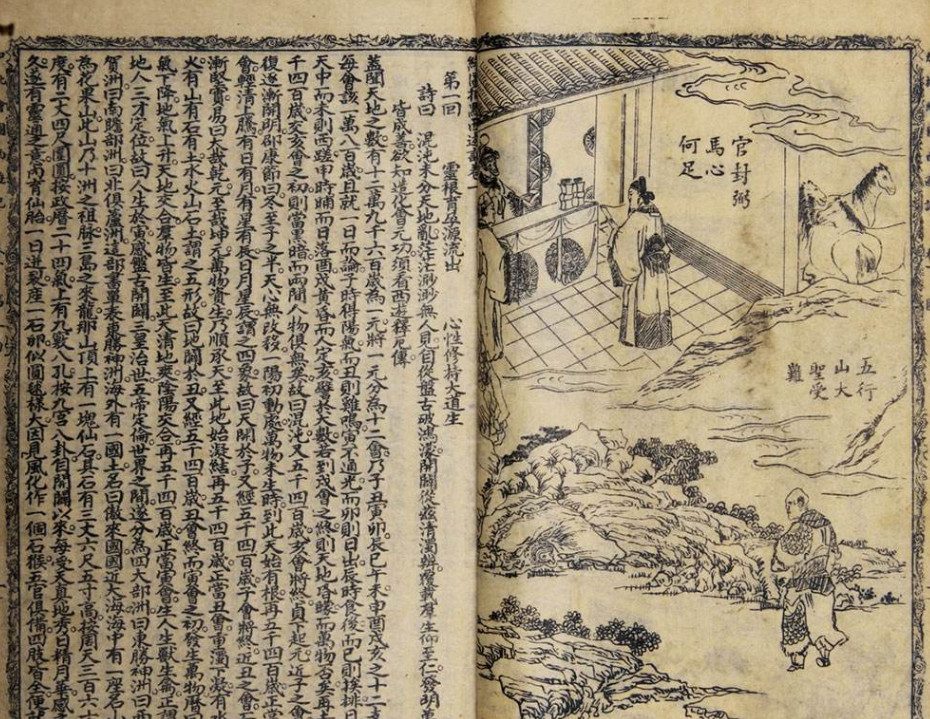 官封弼
馬心
何足
五行
山大
聖受
難
第一回 靈根育孕源流出 心性修持大道生
詩曰 混沌未分天地亂茫茫渺渺無人見自從盤古破鴻濛開闢從茲清濁辨覆載羣生仰至仁發明萬
皆成善欲知造化會元功須看西遊釋厄傳
蓋聞天地之數有十二萬九千六百歲為一元將一元分為十二會乃子丑寅卯辰巳午未申酉戌亥之十二支
每會該一萬八百歲且就一日而論子時得陽氣而丑則雞鳴寅不通光而卯則日出辰時食後而巳則挨排日
天中而未則西蹉申時晡而日落酉戌黃昏而人定亥譬於大數若到戌會之終則天地昏曚而萬物否矣再去
千四百歲交亥會之初則當黑暗而兩間人物俱無矣故曰混沌又五千四百歲亥會將終貞下起元近子之會
復逐漸開明邵康節曰冬至子之半天心無改移一陽初動處萬物未生時到此天始有根再五千四百歲正當
會輕清上騰有日有月有星有辰日月星辰謂之四象故曰天開於子又經五千四百歲子會將終近丑之會
漸堅實易曰大哉乾元至哉坤元萬物資生乃順承天至此地始凝結再五千四百歲正當丑會重濁下凝有水
火有山有石有土水火山石土謂之五形故曰地闢於丑又經五千四百歲丑會終而寅會之初發生萬物曆曰
氣下降地氣上升天地交合羣物皆生至此天清地爽陰陽交合再五千四百歲正當寅會生人生獸生禽正謂
地人三才定位故曰人生於寅感盤古開闢三皇治世五帝定倫世界之間遂分為四大部洲曰東勝神洲曰西
賀洲曰南贍部洲曰北俱蘆洲這部書單表東勝神洲海外有一國土名曰傲來國國近大海海中有一座名山
為花果山此山乃十洲之祖脈三島之來龍那山頂上有一塊仙石其石有三丈六尺五寸高按周天三百六十
度有二丈四尺圍圓按政曆二十四氣上有九竅八孔按九宮八卦自開闢以來每受天真地秀日精月華感之
久遂有靈通之意內育仙胎一日迸裂產一石卵似圓毬樣大因見風化作一個石猴五官俱備四肢皆全便